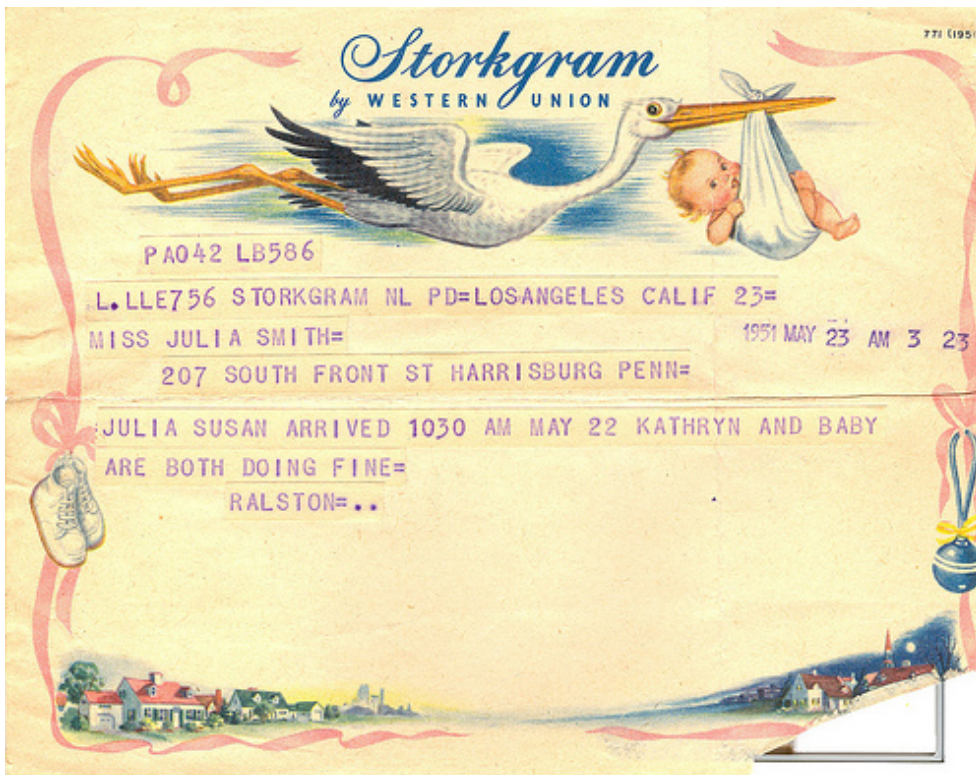 771 (1951
Storkgram
by WESTERN UNION
PA042 LB586
L.LLE756 STORKGRAM NL PD=LOSANGELES CALIF 23=
MISS JULIA SMITH= 1951 MAY 23 AM 3 23
207 SOUTH FRONT ST HARRISBURG PENN=
:JULIA SUSAN ARRIVED 1030 AM MAY 22 KATHRYN AND BABY
ARE BOTH DOING FINE=
RALSTON=..